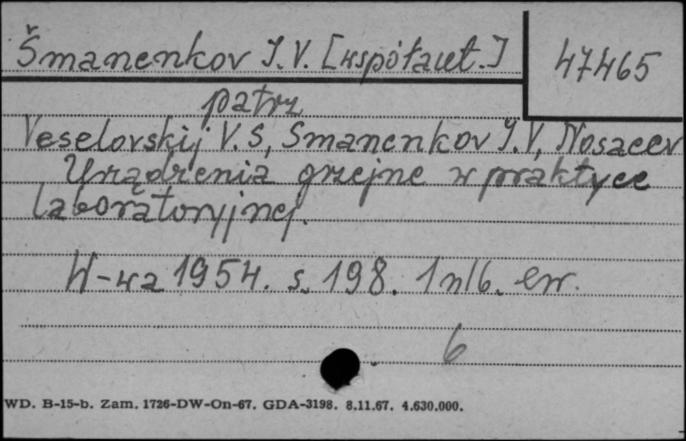 Šmanenkov I.V. [współaut.]
47465
patrz
Veselovskij V.S, Smanenkov I.V, Nosacev
Urządzenia grzejne w praktyce
laboratoryjnej.
W-wa 1954. s. 198. 1 nlb. err.
6
WD. B-15-b. Zam. 1726-DW-On-67. GDA-3198. 8.11.67. 4.630.000.